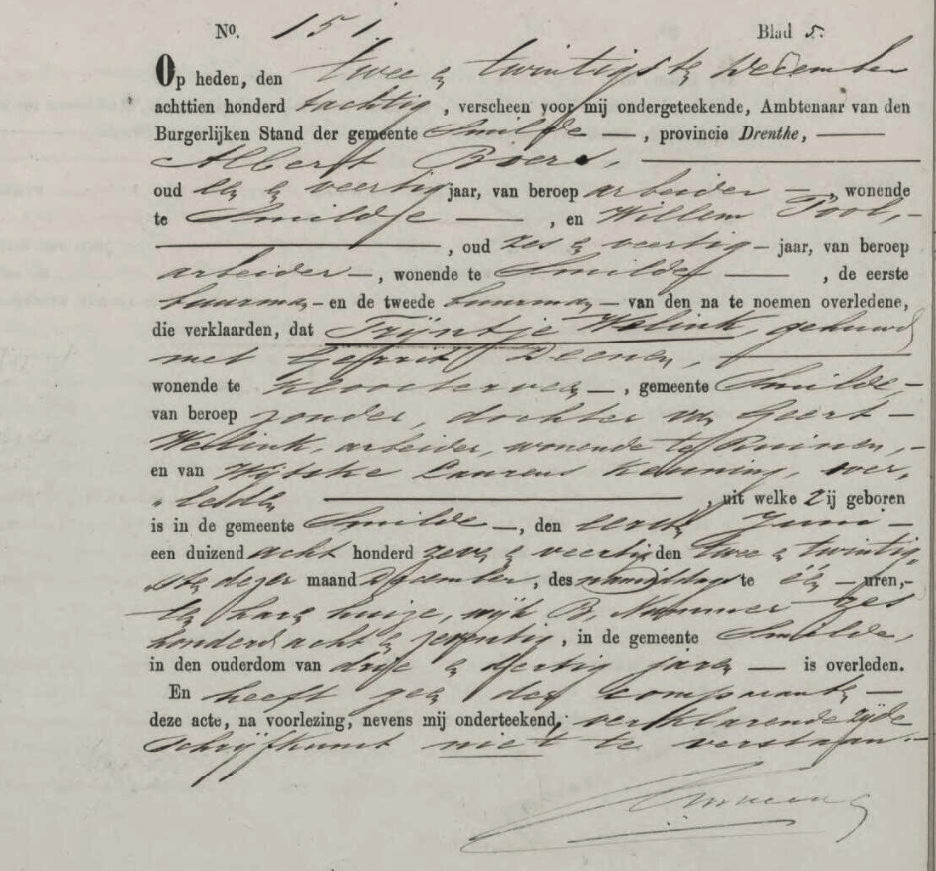 No. 151. Blad 5.
Op heden, den twee en twintigsten December
achttien honderd tachtig, verscheen voor mij ondergeteekende, Ambtenaar van den
Burgerlijken Stand der gemeente Smilde —, provincie Drenthe, —
Albert Boers, —
oud een en veertig jaar, van beroep arbeider —, wonende
te Smilde —, en Willem Pool, —
—, oud zes en veertig — jaar, van beroep
arbeider —, wonende te Smilde —, de eerste
buurman — en de tweede buurman — van den na te noemen overledene,
die verklaarden, dat Trijntje Welink, gehuwd
met Gerrit Deenen, —
wonende te Kloosterveen —, gemeente Smilde, —
van beroep zonder, dochter van Geert —
Wellink, arbeider, wonende te Ruinen, —
en van Wijtske Laurens Keuning, over-
leden —, uit welke zij geboren
is in de gemeente Smilde —, den eersten Juni —
een duizend acht honderd zeven en veertig den twee en twintig-
sten dezer maand December, des namiddags te één — uren, -
ten hare huize, wijk B, Nummer zes
honderd acht en zeventig, in de gemeente Smilde,
in den ouderdom van drie en dertig jaren — is overleden.
En heeft geen der comparanten —
deze acte, na voorlezing, nevens mij onderteekend, verklarende zijde
schrijfkunst niet te verstaan. —